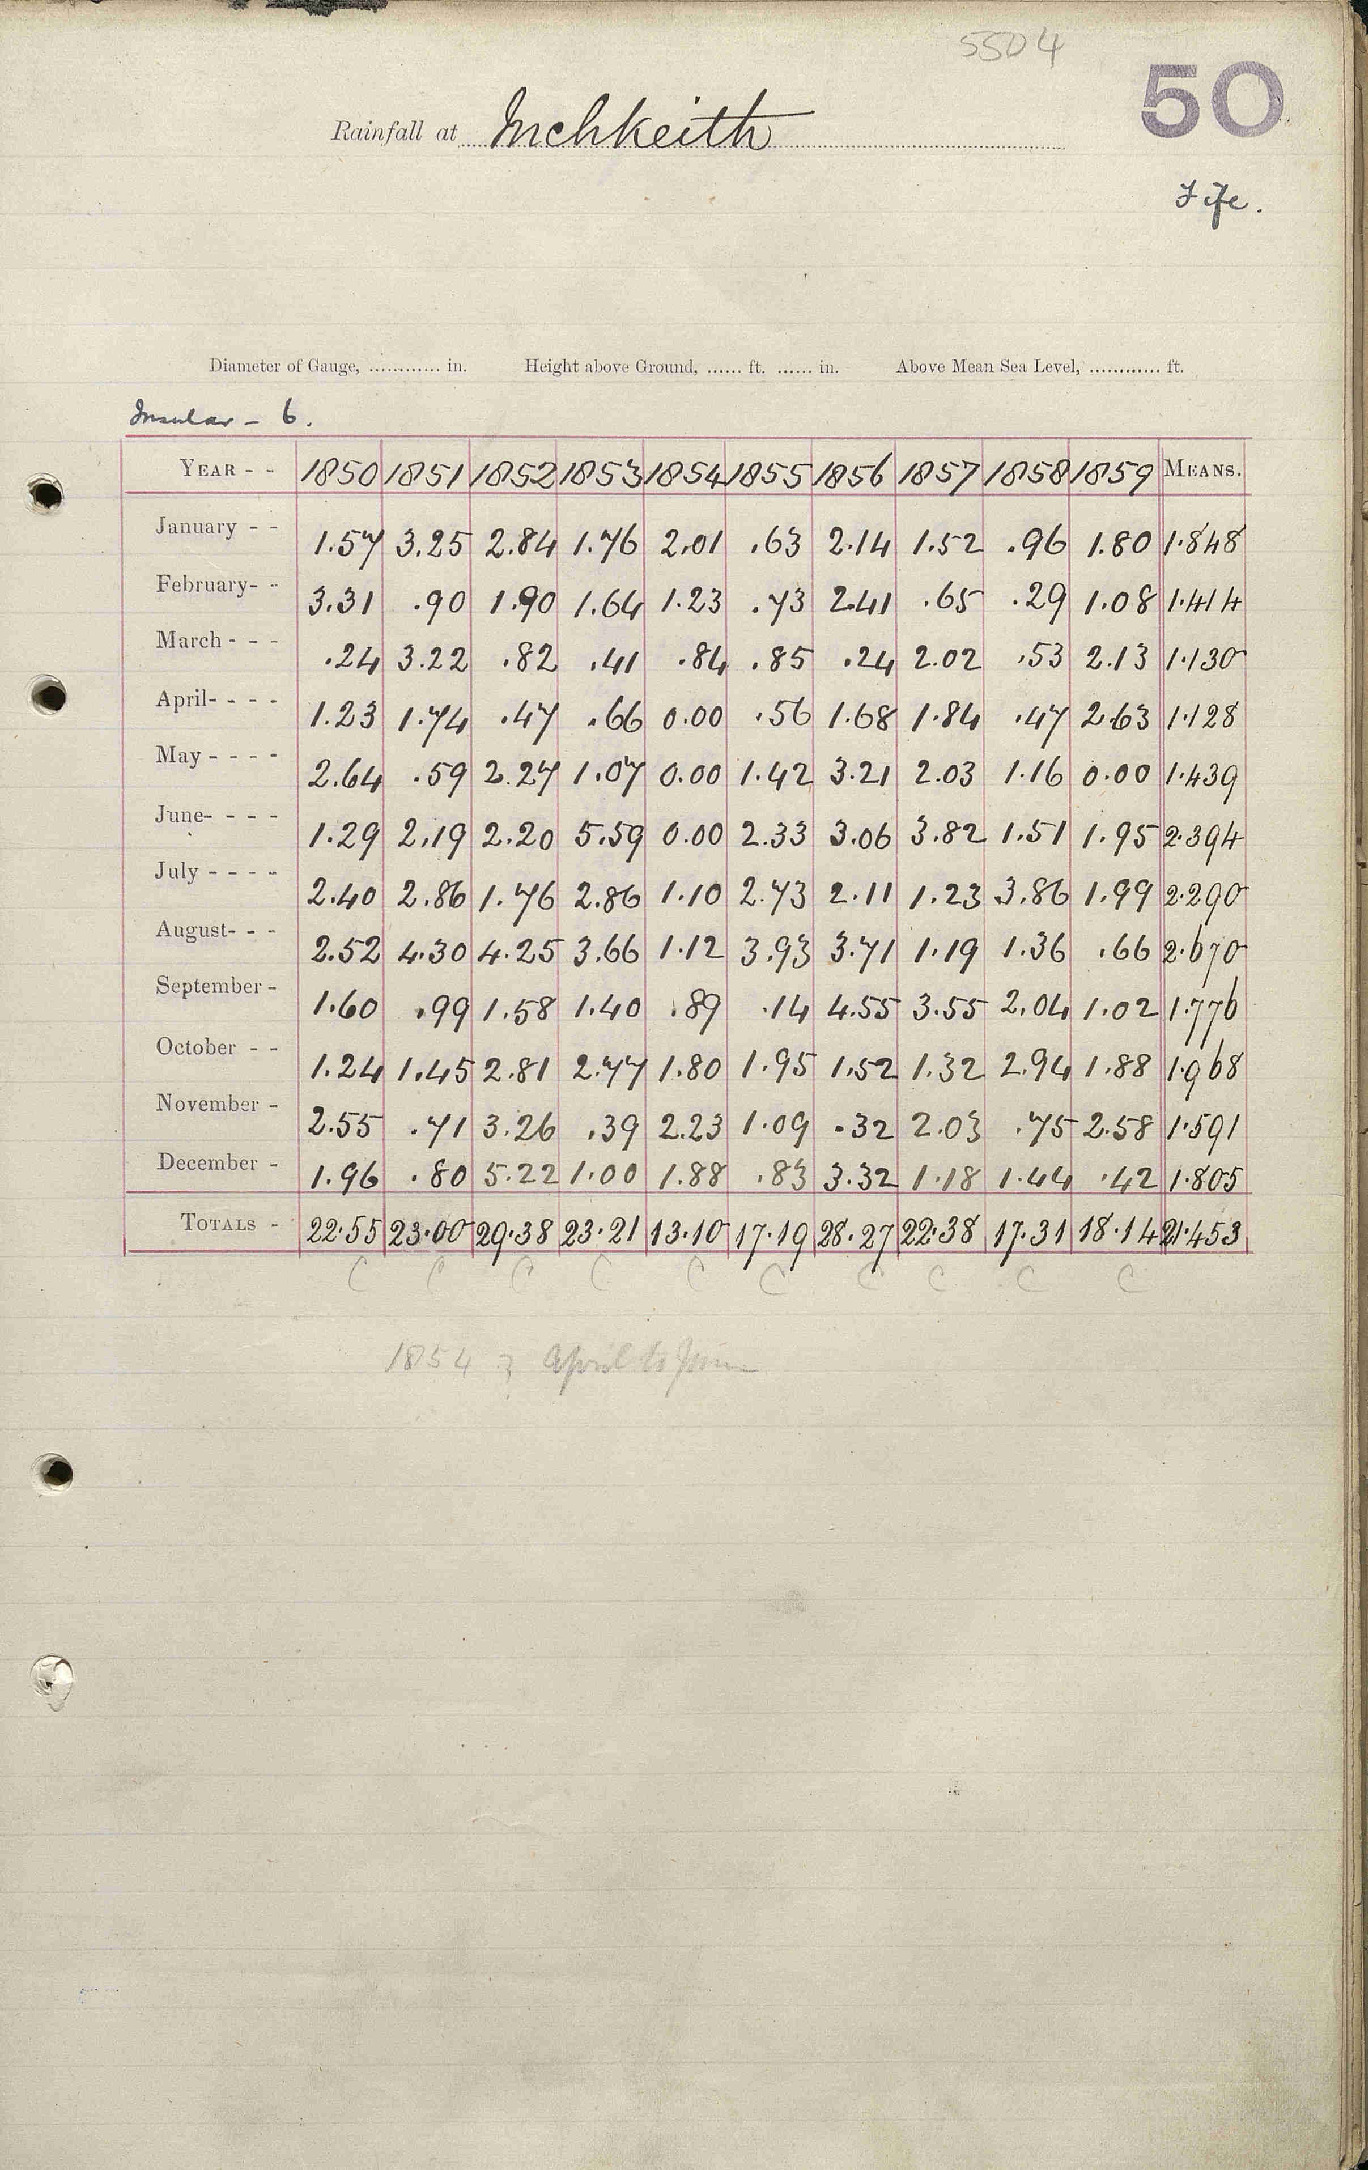 5504
50
Rainfall at Inchkeith
Fife.
Diameter of Gauge, ............ in. Height above Ground, ...... ft. ...... in. Above Mean Sea Level, ............ ft.
Insular - 6.
YEAR - - 1850 1851 1852 1853 1854 1855 1856 1857 1858 1859 MEANS.
January - - 1.57 3.25 2.84 1.76 2.01 .63 2.14 1.52 .96 1.80 1.848
February - - 3.31 .90 1.90 1.64 1.23 .73 2.41 .65 .29 1.08 1.414
March - - - .24 3.22 .82 .41 .84 .85 .24 2.02 .53 2.13 1.130
April - - - - 1.23 1.74 .47 .66 0.00 .56 1.68 1.84 .47 2.63 1.128
May - - - - 2.64 .59 2.27 1.07 0.00 1.42 3.21 2.03 1.16 0.00 1.439
June - - - - 1.29 2.19 2.20 5.59 0.00 2.33 3.06 3.82 1.51 1.95 2.394
July - - - - 2.40 2.86 1.76 2.86 1.10 2.73 2.11 1.23 3.86 1.99 2.290
August - - - 2.52 4.30 4.25 3.66 1.12 3.93 3.71 1.19 1.36 .66 2.670
September - 1.60 .99 1.58 1.40 .89 .14 4.55 3.55 2.04 1.02 1.776
October - - 1.24 1.45 2.81 2.77 1.80 1.95 1.52 1.32 2.94 1.88 1.968
November - 2.55 .71 3.26 .39 2.23 1.09 .32 2.03 .75 2.58 1.591
December - 1.96 .80 5.22 1.00 1.88 .83 3.32 1.18 1.44 .42 1.805
TOTALS - 22.55 23.00 29.38 23.21 13.10 17.19 28.27 22.38 17.31 18.14 21.453
C C C C C C C C C C
1854 ? April to June